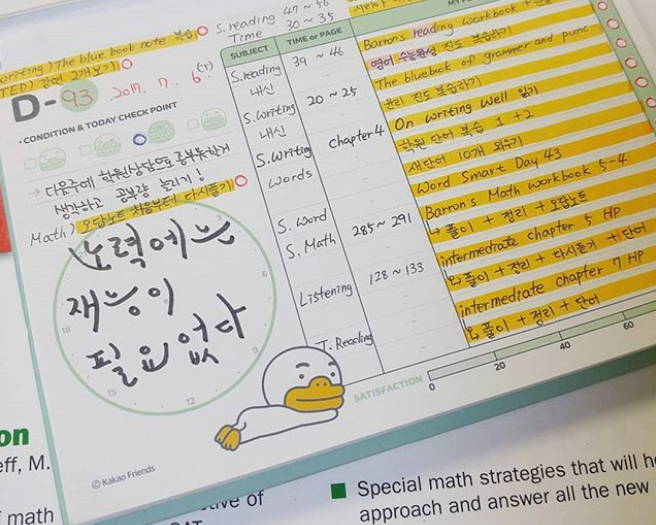 S.reading 47 ~ 56
Time 30 ~ 35
writing) The blue book note 복습
TED) 강연 2개 보기
D-93 2017. 7. 6. (T)
· CONDITION & TODAY CHECK POINT
→ 다음주에 학원상담으로 공부못한거
생각하고 공부량 늘리기!
Math) 오답노트 처음부터 다시풀기
노력에는
재능이
필요없다
3
6
9
12
15
18
© Kakao Friends
SUBJECT TIME or PAGE
S.reading 39 ~ 46 Barron's reading workbook
내신 영어 수능완성 진도 복습하기
S.writing 20 ~ 25 The bluebook of grammer and punc.
내신 윤리 진도 복습하기
S.writing chapter 4 On writing Well 읽기
words 학원 단어 복습 1 + 2
새단어 10개 외우기
S. Word Word Smart Day 43
S. Math 285 ~ 291 Barron's Math workbook 5-4
↳ 풀이 + 정리 + 오답노트
Listening 128 ~ 133 intermediate chapter 5 HP
↳ 풀이 + 정리 + 다시듣기 + 단어
T. Reading intermediate chapter 7 HP
↳ 풀이 + 정리 + 단어
SATISFACTION 0 20 40 60
on
eff, M.
math
ive of
SAT
Special math strategies that will he
approach and answer all the new